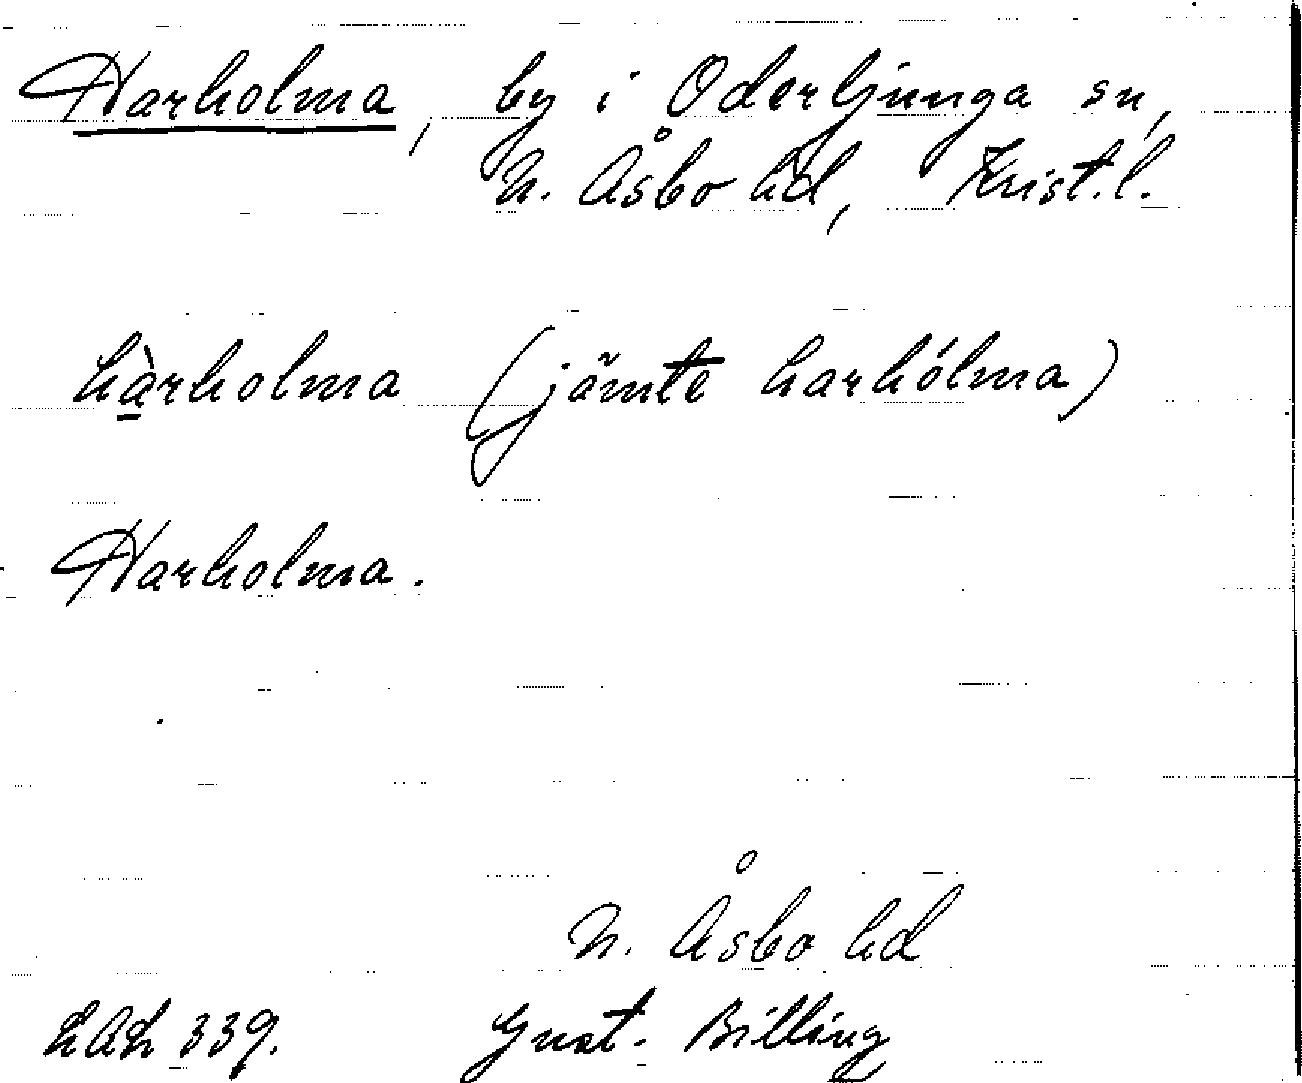 Harholma, by i Oderljunga sn,
N. Åsbo hd, Krist. l.
hàrholma (jämte harhólma)
Harholma.
N. Åsbo hd
LAL 339. Gust. Billing